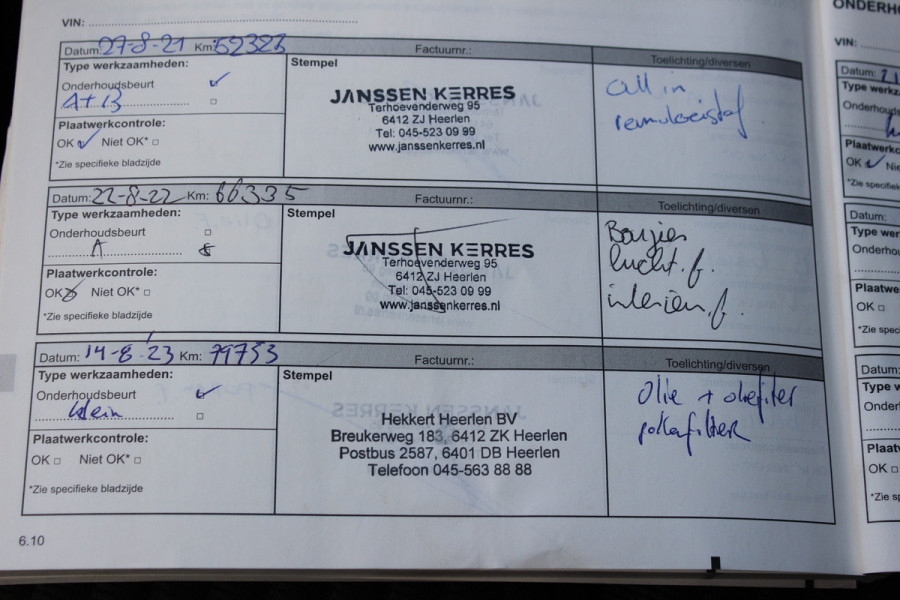 VIN:
Datum: 27-8-21 Km: 52323 Factuurnr.: Toelichting/diversen
Type werkzaamheden:
Stempel
Onderhoudsbeurt
A+B
Plaatwerkcontrole:
OK Niet OK*
*Zie specifieke bladzijde
JANSSEN KERRES
Terhoevenderweg 95
6412 ZJ Heerlen
Tel: 045-523 09 99
www.janssenkerres.nl
all in
remvloeistof
Datum: 22-8-22 Km: 66335 Factuurnr.: Toelichting/diversen
Type werkzaamheden:
Stempel
Onderhoudsbeurt
A
Plaatwerkcontrole:
OK Niet OK*
*Zie specifieke bladzijde
JANSSEN KERRES
Terhoevenderweg 95
6412 ZJ Heerlen
Tel: 045-523 09 99
www.janssenkerres.nl
Bougies
lucht.f.
interieu.f.
Datum: 14-8-'23 Km: 79753 Factuurnr.: Toelichting/diversen
Type werkzaamheden:
Stempel
Onderhoudsbeurt
klein
Plaatwerkcontrole:
OK Niet OK*
*Zie specifieke bladzijde
Hekkert Heerlen BV
Breukerweg 183, 6412 ZK Heerlen
Postbus 2587, 6401 DB Heerlen
Telefoon 045-563 88 88
olie + oliefilter
pollenfilter
6.10
VIN:
Datum:
OK
Datum:
OK
Datum:
OK